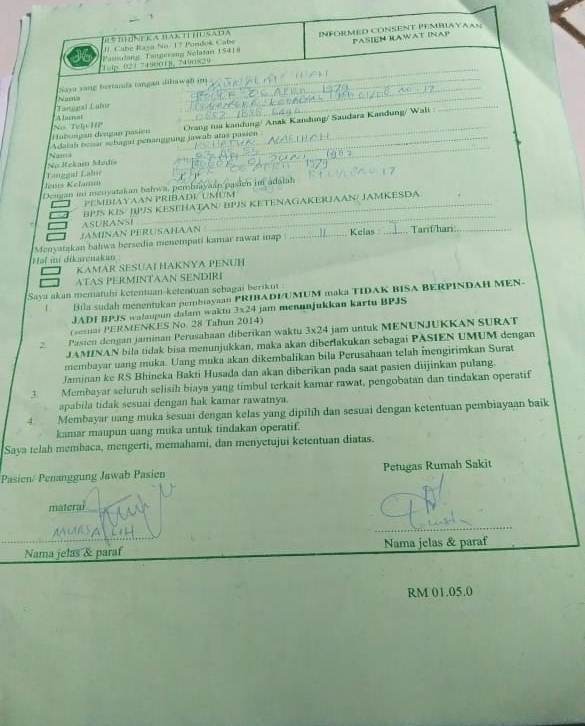 RS BHINEKA BAKTI HUSADA
Jl. Cabe Raya No. 17 Pondok Cabe
Pamulang, Tangerang Selatan 15418
Telp. 021 7490018, 7490829
INFORMED CONSENT PEMBIAYAAN
PASIEN RAWAT INAP
Saya yang bertanda tangan dibawah ini :
Nama
Tanggal Lahir APRIL 1979
Alamat NO 17
No. Telp/HP
Hubungan dengan pasien Orang tua kandung/ Anak Kandung/ Saudara Kandung/ Wali :
Adalah benar sebagai penanggung jawab atas pasien :
Nama
No.Rekam Medis
Tanggal Lahir
Jenis Kelamin
Dengan ini menyatakan bahwa, pembiayaan pasien ini adalah
PEMBIAYAAN PRIBADI/ UMUM
BPJS KIS/ BPJS KESEHATAN/ BPJS KETENAGAKERJAAN/ JAMKESDA
ASURANSI
JAMINAN PERUSAHAAN :
Menyatakan bahwa bersedia menempati kamar rawat inap : Kelas : Tarif/hari:
Hal ini dikarenakan :
KAMAR SESUAI HAKNYA PENUH
ATAS PERMINTAAN SENDIRI
Saya akan mematuhi ketentuan-ketentuan sebagai berikut :
1. Bila sudah menentukan pembiayaan PRIBADI/UMUM maka TIDAK BISA BERPINDAH MEN-
JADI BPJS walaupun dalam waktu 3x24 jam menunjukkan kartu BPJS
(sesuai PERMENKES No. 28 Tahun 2014)
2. Pasien dengan jaminan Perusahaan diberikan waktu 3x24 jam untuk MENUNJUKKAN SURAT
JAMINAN bila tidak bisa menunjukkan, maka akan diberlakukan sebagai PASIEN UMUM dengan
membayar uang muka. Uang muka akan dikembalikan bila Perusahaan telah mengirimkan Surat
Jaminan ke RS Bhineka Bakti Husada dan akan diberikan pada saat pasien diijinkan pulang.
3. Membayar seluruh selisih biaya yang timbul terkait kamar rawat, pengobatan dan tindakan operatif
apabila tidak sesuai dengan hak kamar rawatnya.
4. Membayar uang muka sesuai dengan kelas yang dipilih dan sesuai dengan ketentuan pembiayaan baik
kamar maupun uang muka untuk tindakan operatif.
Saya telah membaca, mengerti, memahami, dan menyetujui ketentuan diatas.
Pasien/ Penanggung Jawab Pasien
Petugas Rumah Sakit
materai
MURSALIH
Nama jelas & paraf
Nama jelas & paraf
RM 01.05.0